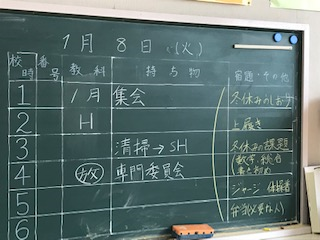 1月8日(火)
校時 番号 教科 持ち物 宿題・その他
1 1月 集会 冬休みのしおり
2 H 上履き
3 清掃→SH 冬休みの課題
4 放 専門委員会
5 ジャージ 体操着
6 弁当(必要な人)